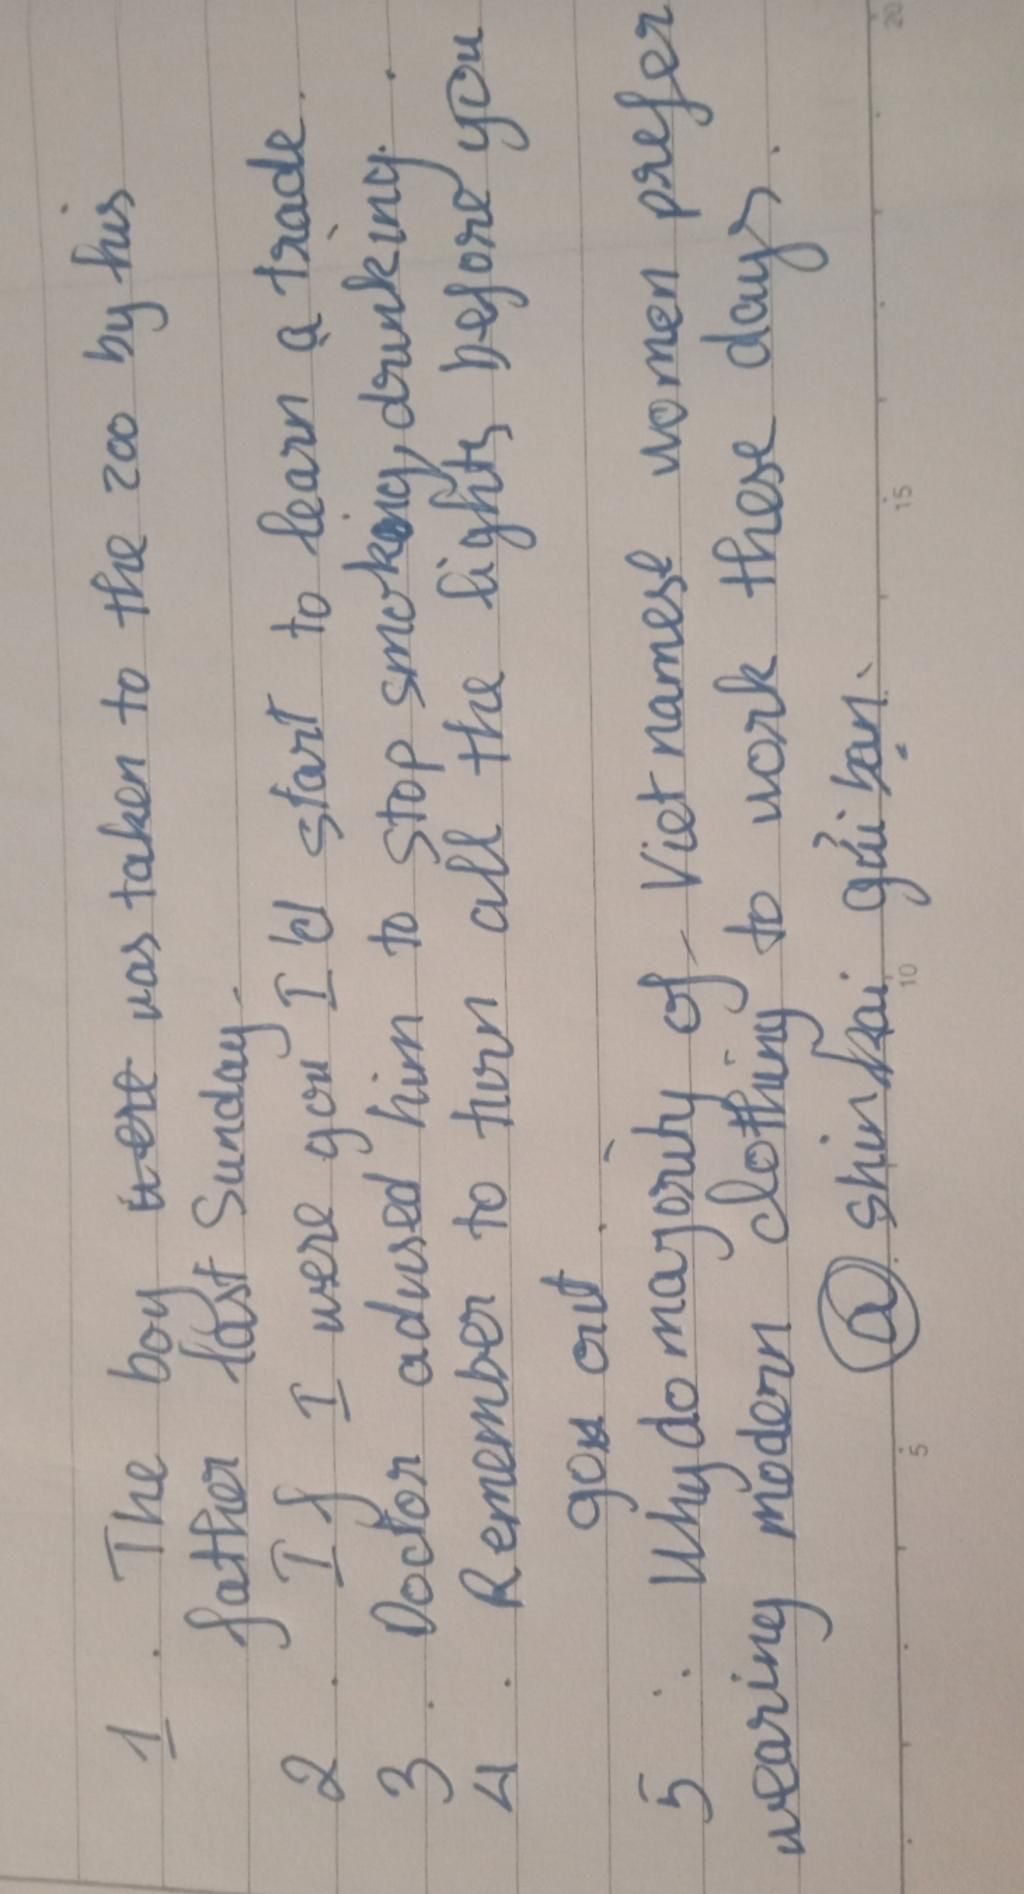 1. The boy were was taken to the zoo by his
father last Sunday.
2. If I were you I'd start to learn a trade.
3. Doctor advised him to stop smoking, drinking.
4. Remember to turn all the lights before you
gou out
5. Why do majority of Vietnamese women prefer
wearing modern clothing to work these days.
@ shinkai gửi bạn.
5 10 15 20